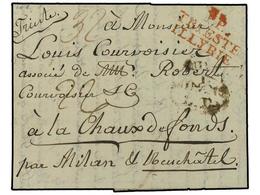 Trieste
à Monsieur
Louis Courvoisier
TRIESTE
ILLYRIE
associé de Robert
Courvoisier & C
à la Chaux de fonds
par Milan & Neuchâtel